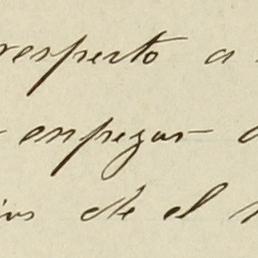 respecto a
empezar
de el